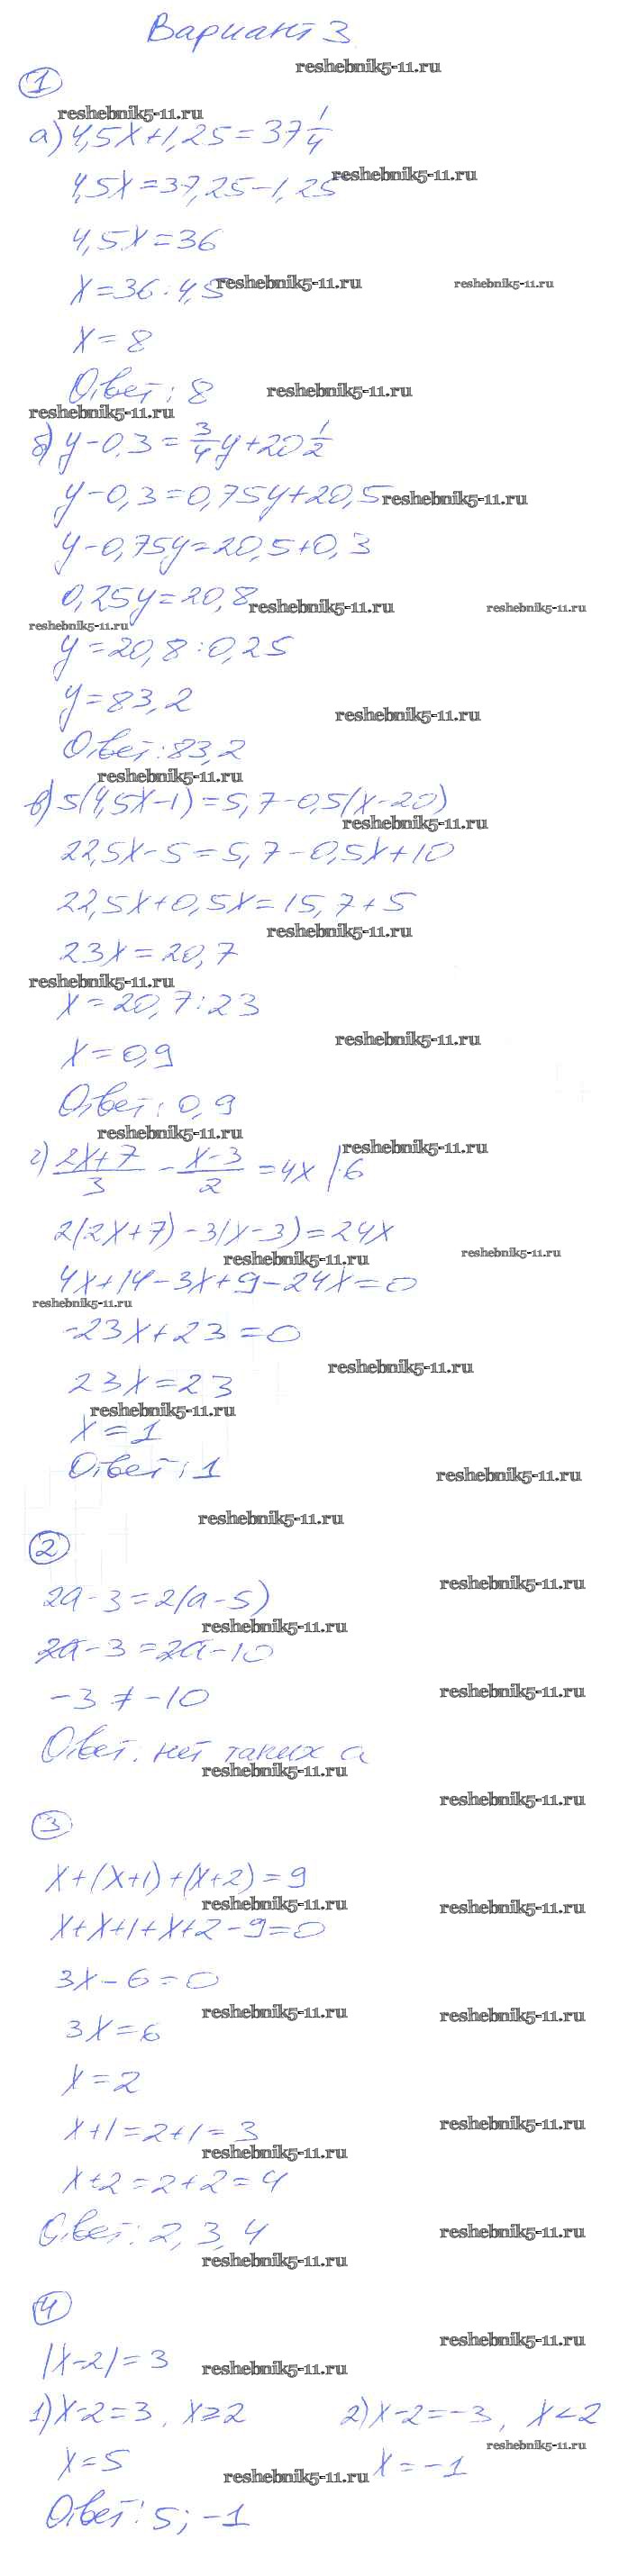 Вариант 3
reshebnik5-11.ru
1
reshebnik5-11.ru
а) 4,5x+1,25=37 1/4
reshebnik5-11.ru
4,5x=37,25-1,25
4,5x=36
x=36:4,5
reshebnik5-11.ru
reshebnik5-11.ru
x=8
Ответ: 8
reshebnik5-11.ru
reshebnik5-11.ru
б) y-0,3=3/4y+20 1/2
y-0,3=0,75y+20,5
reshebnik5-11.ru
y-0,75y=20,5+0,3
0,25y=20,8
reshebnik5-11.ru
reshebnik5-11.ru
reshebnik5-11.ru
y=20,8:0,25
y=83,2
reshebnik5-11.ru
Ответ: 83,2
reshebnik5-11.ru
в) 5(4,5x-1)=5,7-0,5(x-20)
reshebnik5-11.ru
22,5x-5=5,7-0,5x+10
22,5x+0,5x=15,7+5
reshebnik5-11.ru
23x=20,7
reshebnik5-11.ru
x=20,7:23
reshebnik5-11.ru
x=0,9
Ответ: 0,9
reshebnik5-11.ru
reshebnik5-11.ru
г) (2x+7)/3 - (x-3)/2 =4x |·6
2(2x+7)-3(x-3)=24x
reshebnik5-11.ru
reshebnik5-11.ru
4x+14-3x+9-24x=0
reshebnik5-11.ru
-23x+23=0
reshebnik5-11.ru
23x=23
reshebnik5-11.ru
x=1
Ответ: 1
reshebnik5-11.ru
reshebnik5-11.ru
2
reshebnik5-11.ru
2a-3=2(a-5)
reshebnik5-11.ru
2a-3=2a-10
-3≠-10
reshebnik5-11.ru
Ответ: нет таких a
reshebnik5-11.ru
reshebnik5-11.ru
3
x+(x+1)+(x+2)=9
reshebnik5-11.ru
reshebnik5-11.ru
x+x+1+x+2-9=0
3x-6=0
reshebnik5-11.ru
reshebnik5-11.ru
3x=6
x=2
reshebnik5-11.ru
x+1=2+1=3
reshebnik5-11.ru
x+2=2+2=4
Ответ: 2, 3, 4
reshebnik5-11.ru
reshebnik5-11.ru
4
reshebnik5-11.ru
|x-2|=3
reshebnik5-11.ru
1) x-2=3, x≥2 2) x-2=-3, x<2
reshebnik5-11.ru
x=5 x=-1
reshebnik5-11.ru
Ответ: 5; -1